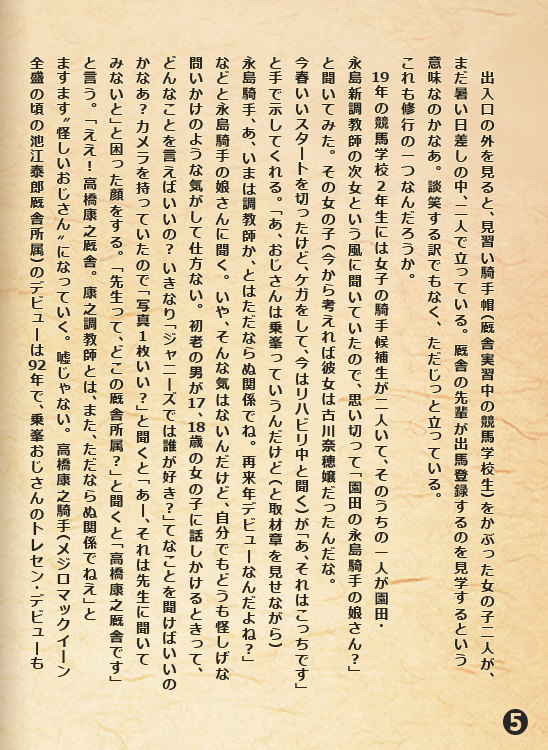 出入口の外を見ると、見習い騎手帽(厩舎実習中の競馬学校生)をかぶった女の子二人が、
まだ暑い日差しの中、二人で立っている。厩舎の先輩が出馬登録するのを見学するという
意味なのかなあ。談笑する訳でもなく、ただじっと立っている。
これも修行の一つなんだろうか。
19年の競馬学校2年生には女子の騎手候補生が二人いて、そのうちの一人が園田・
永島新調教師の次女という風に聞いていたので、思い切って「園田の永島騎手の娘さん?」
と聞いてみた。その女の子(今から考えれば彼女は古川奈穂嬢だったんだな。
今春いいスタートを切ったけど、ケガをして、今はリハビリ中と聞く)が「あ、それはこっちです」
と手で示してくれる。「あ、おじさんは乗峯っていうんだけど(と取材章を見せながら)
永島騎手、あ、いまは調教師か、とはただならぬ関係でね。再来年デビューなんだよね?」
などと永島騎手の娘さんに聞く。いや、そんな気はないんだけど、自分でもどうも怪しげな
問いかけのような気がして仕方ない。初老の男が17、18歳の女の子に話しかけるときって、
どんなことを言えばいいの?いきなり「ジャニーズでは誰が好き?」てなことを聞けばいいの
かなあ?カメラを持っていたので「写真1枚いい?」と聞くと「あー、それは先生に聞いて
みないと」と困った顔をする。「先生って、どこの厩舎所属?」と聞くと「高橋康之厩舎です」
と言う。「ええ!高橋康之厩舎。康之調教師とは、また、ただならぬ関係でねえ」と
ますます〝怪しいおじさん〟になっていく。嘘じゃない。高橋康之騎手(メジロマックイーン
全盛の頃の池江泰郎厩舎所属)のデビューは92年で、乗峯おじさんのトレセン・デビューも
5